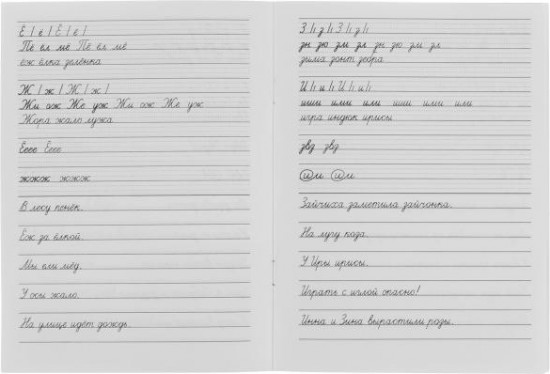 Ё | ё | Ё | ё |
Пё ёл мё Пё ёл мё
ёж ёлка зелёнка
Ж | ж | Ж | ж |
Жи ож Же уж Жи ож Же уж
Жора жало лужа
Ееее Ееее
жжжж жжжж
В лесу пенёк.
Ёж за ёлкой.
Мы ели мёд.
У осы жало.
На улице идёт дождь.
З | з | З | з |
зн зю зм зл зн зю зм зл
зима зонт зебра
И | и | И | и |
иши ими или иши ими или
игра индюк ирисы
звд звд
им им
Зайчиха заметила зайчонка.
На лугу коза.
У Иры ирисы.
Играть с иглой опасно!
Инна и Зина вырастили розы.